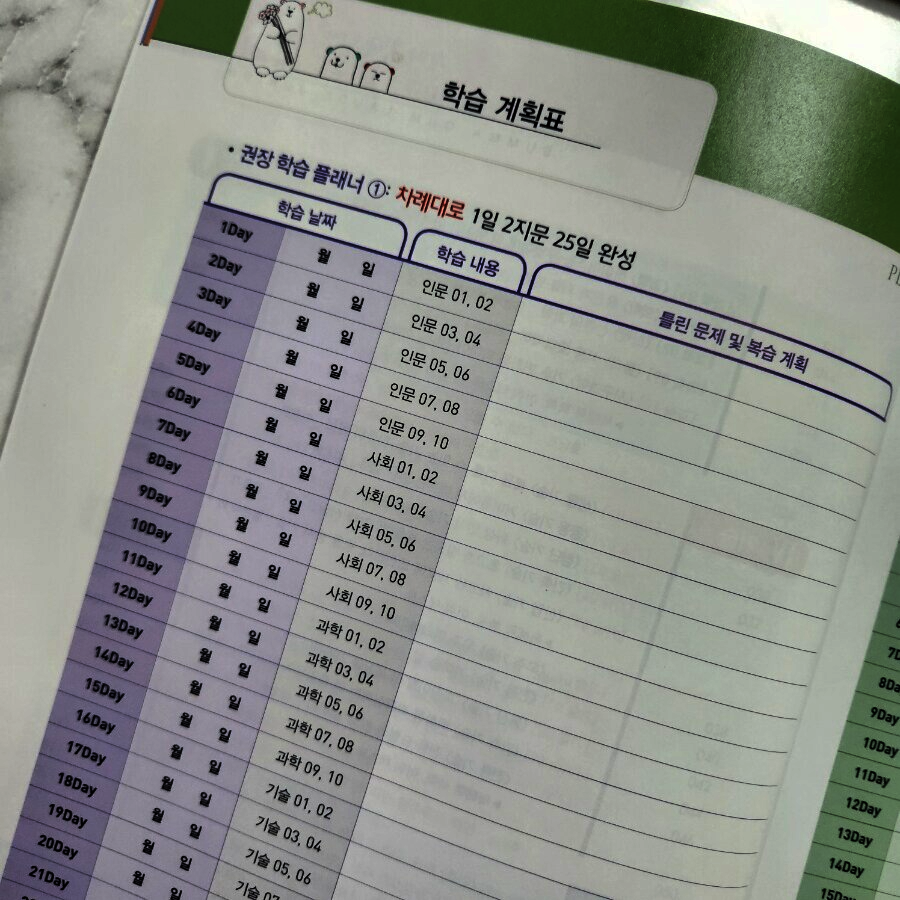 학습 계획표
• 권장 학습 플래너 ①: 차례대로 1일 2지문 25일 완성
학습 날짜 학습 내용 틀린 문제 및 복습 계획
1Day 월 일 인문 01, 02
2Day 월 일 인문 03, 04
3Day 월 일 인문 05, 06
4Day 월 일 인문 07, 08
5Day 월 일 인문 09, 10
6Day 월 일 사회 01, 02
7Day 월 일 사회 03, 04
8Day 월 일 사회 05, 06
9Day 월 일 사회 07, 08
10Day 월 일 사회 09, 10
11Day 월 일 과학 01, 02
12Day 월 일 과학 03, 04
13Day 월 일 과학 05, 06
14Day 월 일 과학 07, 08
15Day 월 일 과학 09, 10
16Day 월 일 기술 01, 02
17Day 월 일 기술 03, 04
18Day 월 일 기술 05, 06
19Day 월 일 기술
20Day 월 일
21Day
9Day
10Day
11Day
12Day
13Day
14Day
15Day